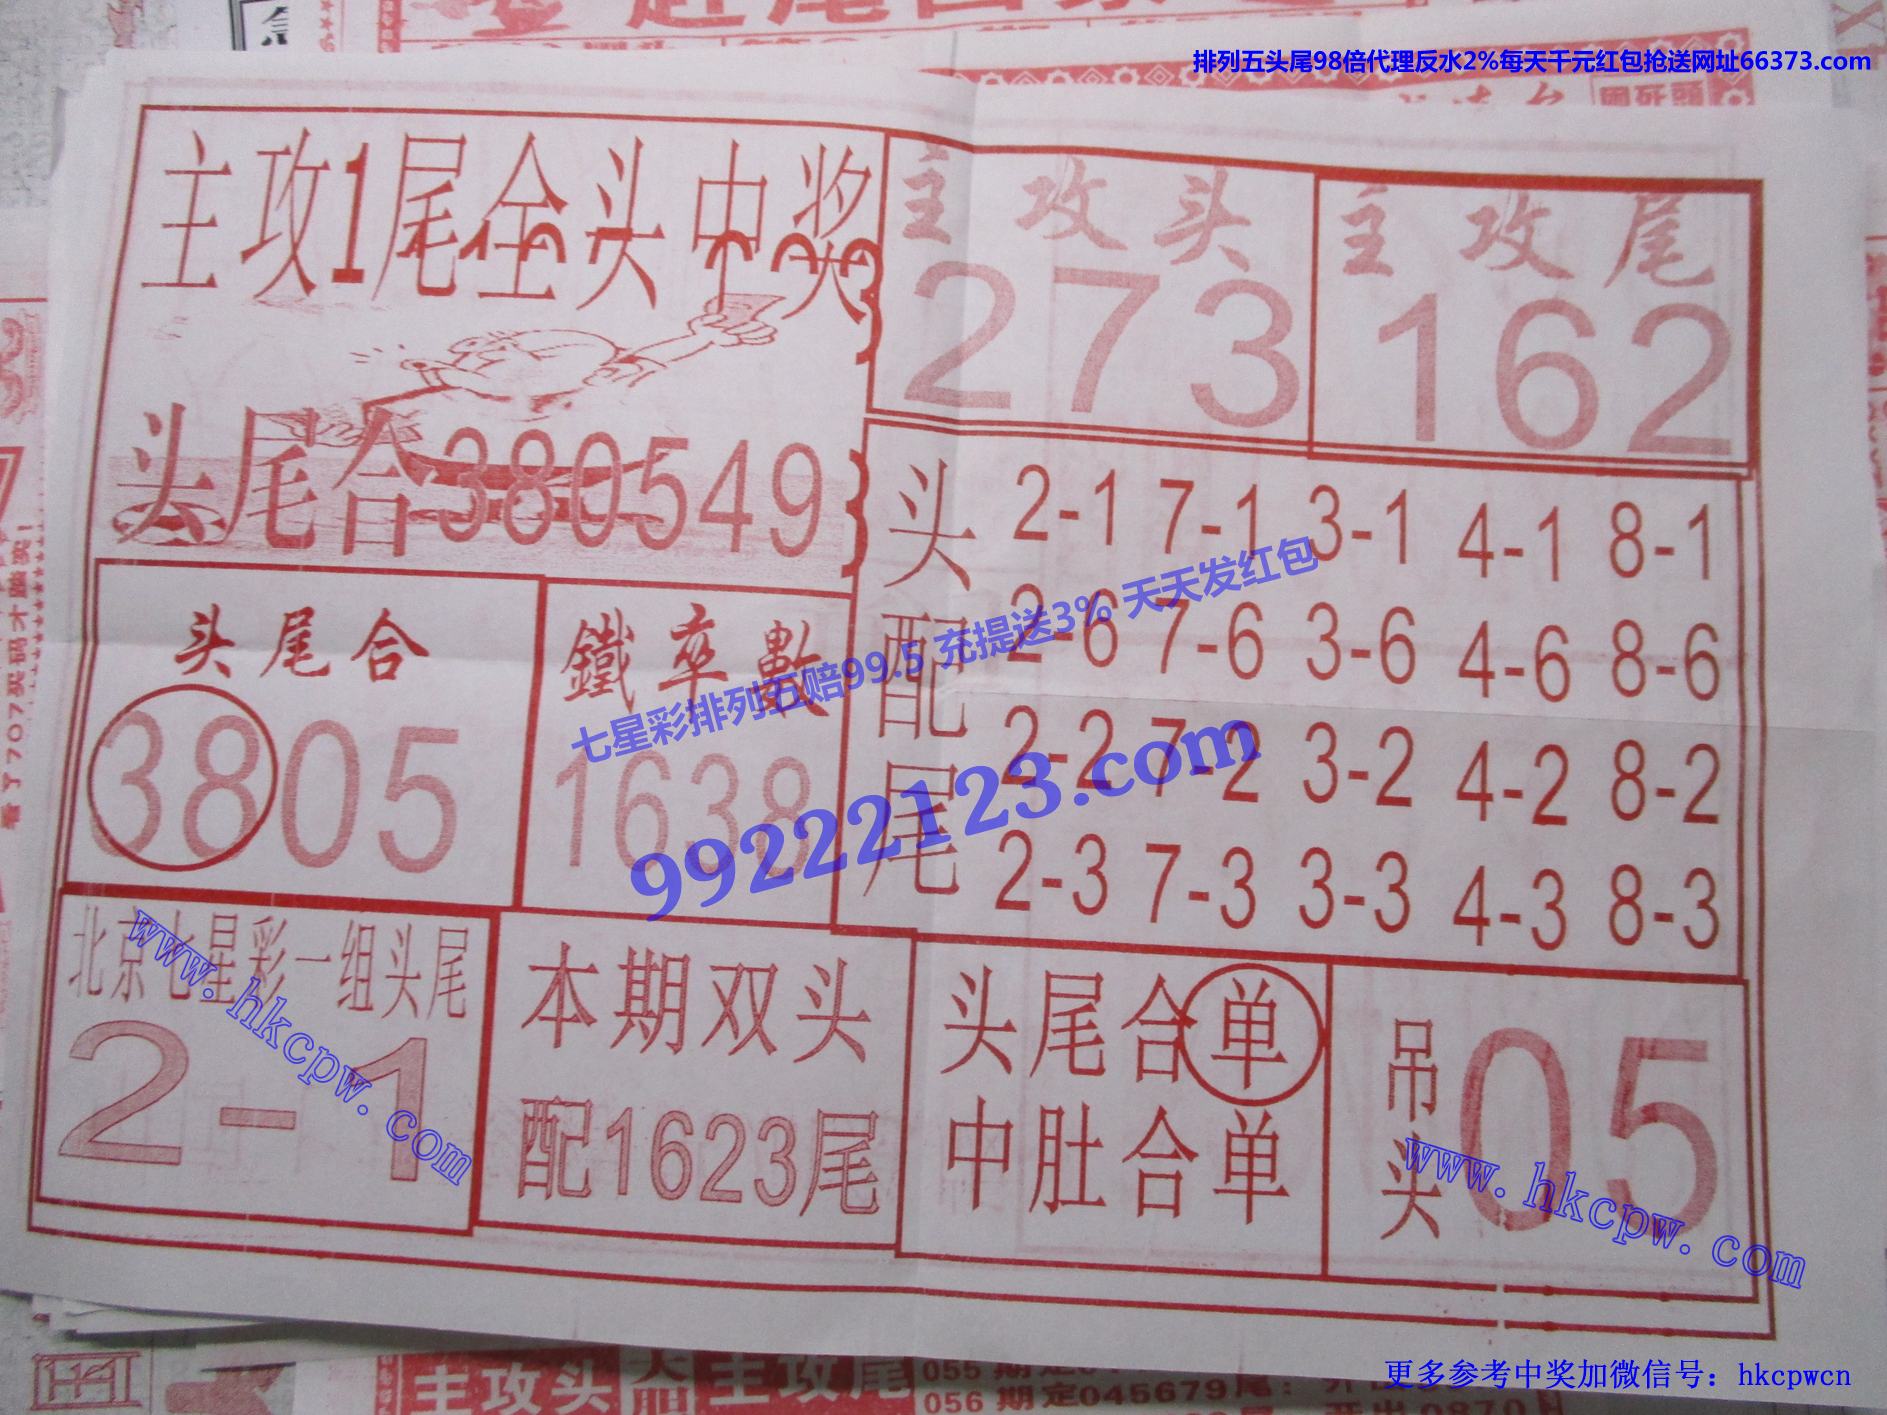 排列五头尾98倍代理反水2%每天千元红包抢送网址66373.com
主攻1尾全头中奖
头尾合380549
主攻头
273
主攻尾
162
头配尾
2-1 7-1 3-1 4-1 8-1
2-6 7-6 3-6 4-6 8-6
2-2 7-2 3-2 4-2 8-2
2-3 7-3 3-3 4-3 8-3
头尾合
3805
鐵卒數
1638
七星彩排列五赔99.5 充提送3% 天天发红包
99222123.com
北京七星彩一组头尾
2-1
www.hkcpw.com
本期双头
配1623尾
头尾合单
中肚合单
吊头
05
www.hkcpw.com
主攻头
主攻尾
056期定045679尾:
更多参考中奖加微信号：hkcpwcn